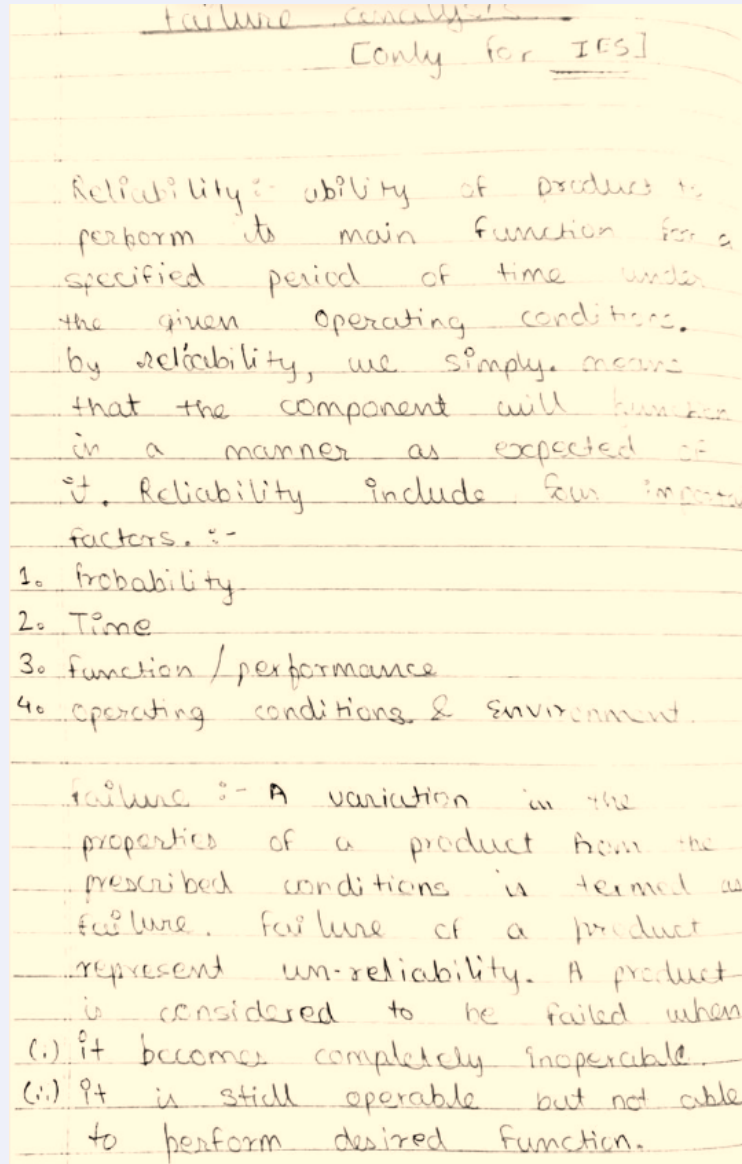 Failure analysis
[only for IES]
Reliability :- ability of product to
perform its main function for a
specified period of time under
the given operating conditions.
by reliability, we simply. means
that the component will function
in a manner as expected of
it. Reliability include four
factors. :-
1. Probability
2. Time
3. function / performance
4. operating conditions & Environment.
failure :- A variation in the
properties of a product from the
prescribed conditions is termed as
failure. failure of a product
represent un-reliability. A product
is considered to be failed when
(i) it becomes completely inoperable.
(ii) it is still operable but not able
to perform desired function.